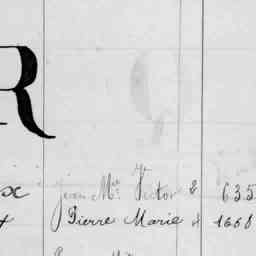 R
x Jean M.ie Victor & 635
x Pierre Marie & 1668